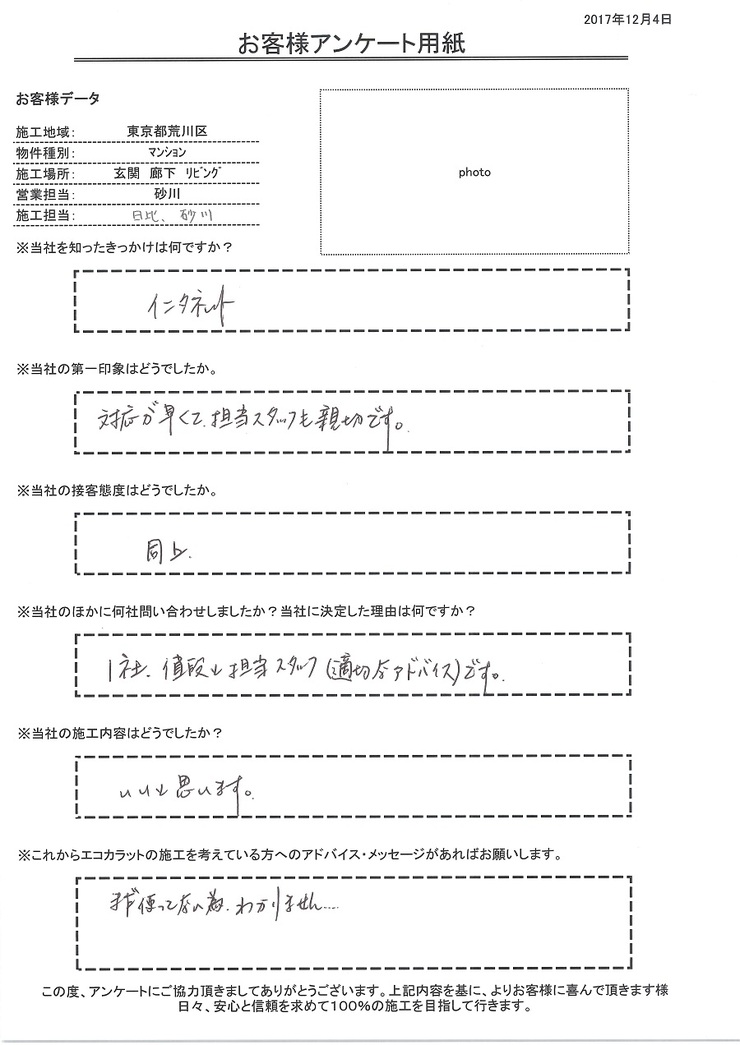 2017年12月4日
お客様アンケート用紙
お客様データ
施工地域: 東京都荒川区
物件種別: マンション
施工場所: 玄関 廊下 リビング
営業担当: 砂川
施工担当: 日比、砂川
photo
※当社を知ったきっかけは何ですか?
インタネット
※当社の第一印象はどうでしたか。
対応が早くて、担当スタッフも親切です。
※当社の接客態度はどうでしたか。
同上.
※当社のほかに何社問い合わせしましたか?当社に決定した理由は何ですか?
1社、値段と担当スタッフ(適切なアドバイス)です。
※当社の施工内容はどうでしたか?
いいと思います。
※これからエコカラットの施工を考えている方へのアドバイス・メッセージがあればお願いします。
まだ使ってない為、わかりません....
この度、アンケートにご協力頂きましてありがとうございます。上記内容を基に、よりお客様に喜んで頂きます様
日々、安心と信頼を求めて100%の施工を目指して行きます。